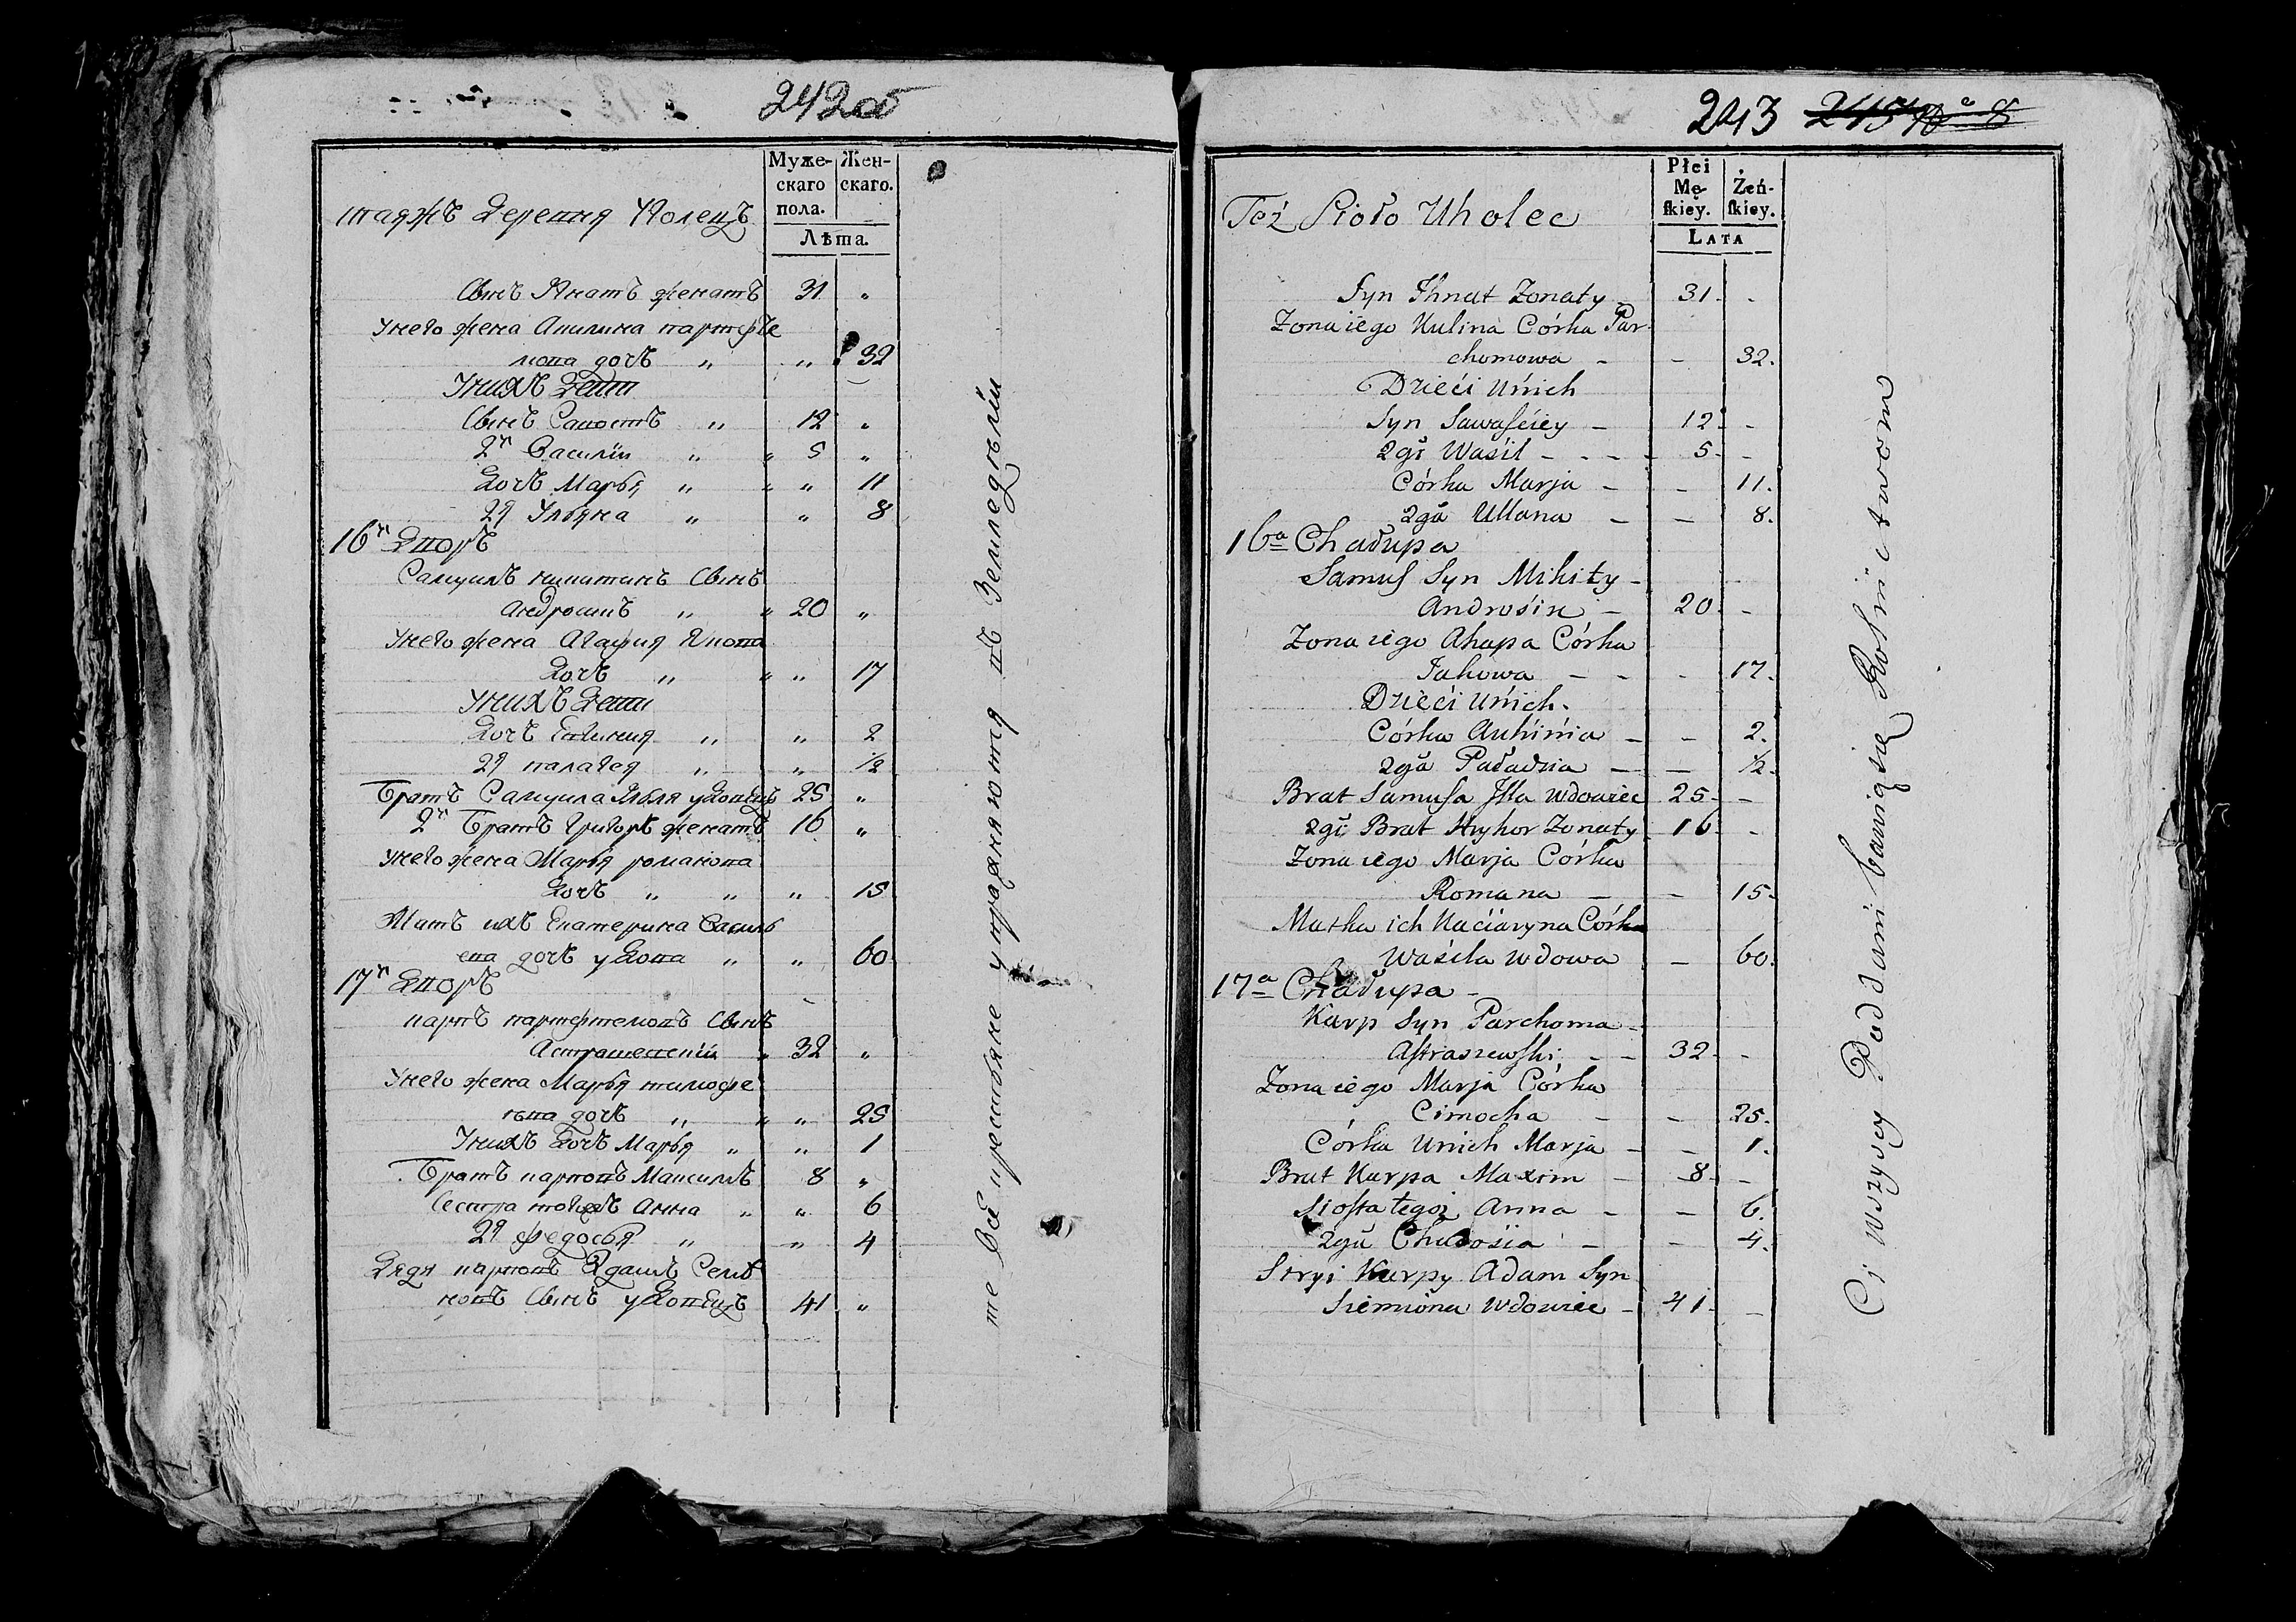 242об
Муже-
скаго
пола.
Жен-
скаго.
Лѣта.
таяжъ Деревня Уголецъ
Сынъ Игнатъ женатъ 31 "
Унего жена Акилина парфе
нова дочь " " 32
Унихъ Дети
Сынъ Савостъ " 12 "
2й Василіи " " 5 "
Дочь Марья " " " 11
2я Ульяна " " 8
16й Дворъ
Самуилъ никитинъ Сынъ
андросинъ " " 20 "
Унего жена Агафия Якова
Дочь " " " 17
Унихъ Дети
Дочь Евгиния " " 2
2я палагея " " ½
Братъ Самуила Илья удовецъ 25 "
2й Братъ Григоръ женатъ 16 "
Унего жена Марья романова
Дочь " " " 15
Мать ихъ Екатерина Василь
ева дочь удова " " 60
17й Дворъ
карпъ парфемовъ Сынъ
Астрашевскій " 32 "
Унего жена Марья тимофе
ева дочь " " " 25
Унихъ Дочь Марья " " 1
Братъ карповъ Максимъ 8 "
Сестра тогожъ Анна " " 6
2я федосья " " 4
Дядя карповъ Адамъ Семі
новъ Сынъ удовецъ 41 "
те Всѣ крестьяне упражняются въ Земледѣліи
243 243 № 8
Płci
Mę-
skiey.
Żeń-
skiey.
LATA
Też Sioło Uholec
Syn Ihnat Zonaty 31. -
Zona iego Kulina Córka Par
chomowa - - 32.
Dzieći Unich
Syn Sawaściey - 12 -
2gi Waśil - - - - 5. -
Córka Marja - - 11.
2ga Ullana - - 8.
16a Chałupa
Samuś Syn Mikity -
Androśin - 20. -
Zona iego Ahapa Córka
Jakowa - - - 17.
Dzieći Unich.
Córka Auhinia - - 2.
2ga Paładzia - - ½.
Brat Samusa Illa Wdowiec 25. -
2gi Brat Hryhor Zonaty 16. -
Zona iego Marja Córka
Romana - - 15.
Matka ich Kaciaryna Córka
Waśila Wdowa - 60.
17a Chałupa -
Karp Syn Parchoma -
Astraszewski - - 32. -
Zona iego Marja Córka
Cimocha - - 25.
Córka Unich Marja - - 1.
Brat Karpa Maxim - 8. -
Siosta tegoż Anna - - 6.
2ga Chwdosia - - 4.
Stryi Karpy Adam Syn
Siemiona Wdowiec - 41. -
Ci Wszyscy Poddani bawią się Rolnictwom